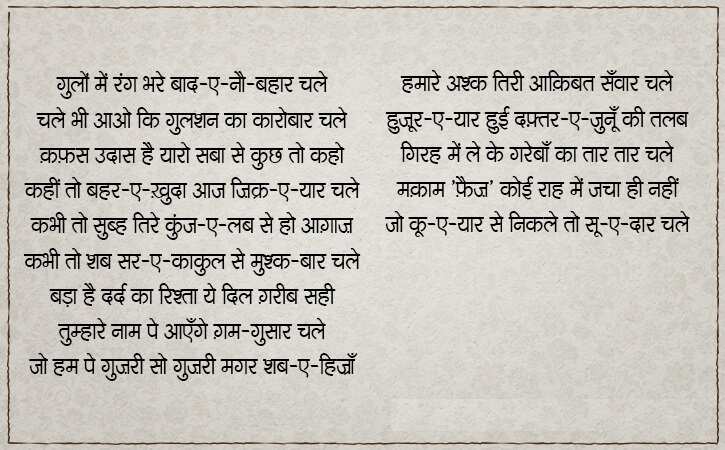 गुलों में रंग भरे बाद-ए-नौ-बहार चले
चले भी आओ कि गुलशन का कारोबार चले
क़फ़स उदास है यारो सबा से कुछ तो कहो
कहीं तो बहर-ए-ख़ुदा आज ज़िक्र-ए-यार चले
कभी तो सुब्ह तिरे कुंज-ए-लब से हो आग़ाज
कभी तो शब सर-ए-काकुल से मुश्क-बार चले
बड़ा है दर्द का रिश्ता ये दिल ग़रीब सही
तुम्हारे नाम पे आएँगे ग़म-गुसार चले
जो हम पे गुज़री सो गुज़री मगर शब-ए-हिज्राँ
हमारे अश्क तिरी आक़िबत सँवार चले
हुज़ूर-ए-यार हुई दफ़्तर-ए-जुनूँ की तलब
गिरह में ले के गरेबाँ का तार तार चले
मक़ाम 'फ़ैज़' कोई राह में जचा ही नहीं
जो कू-ए-यार से निकले तो सू-ए-दार चले